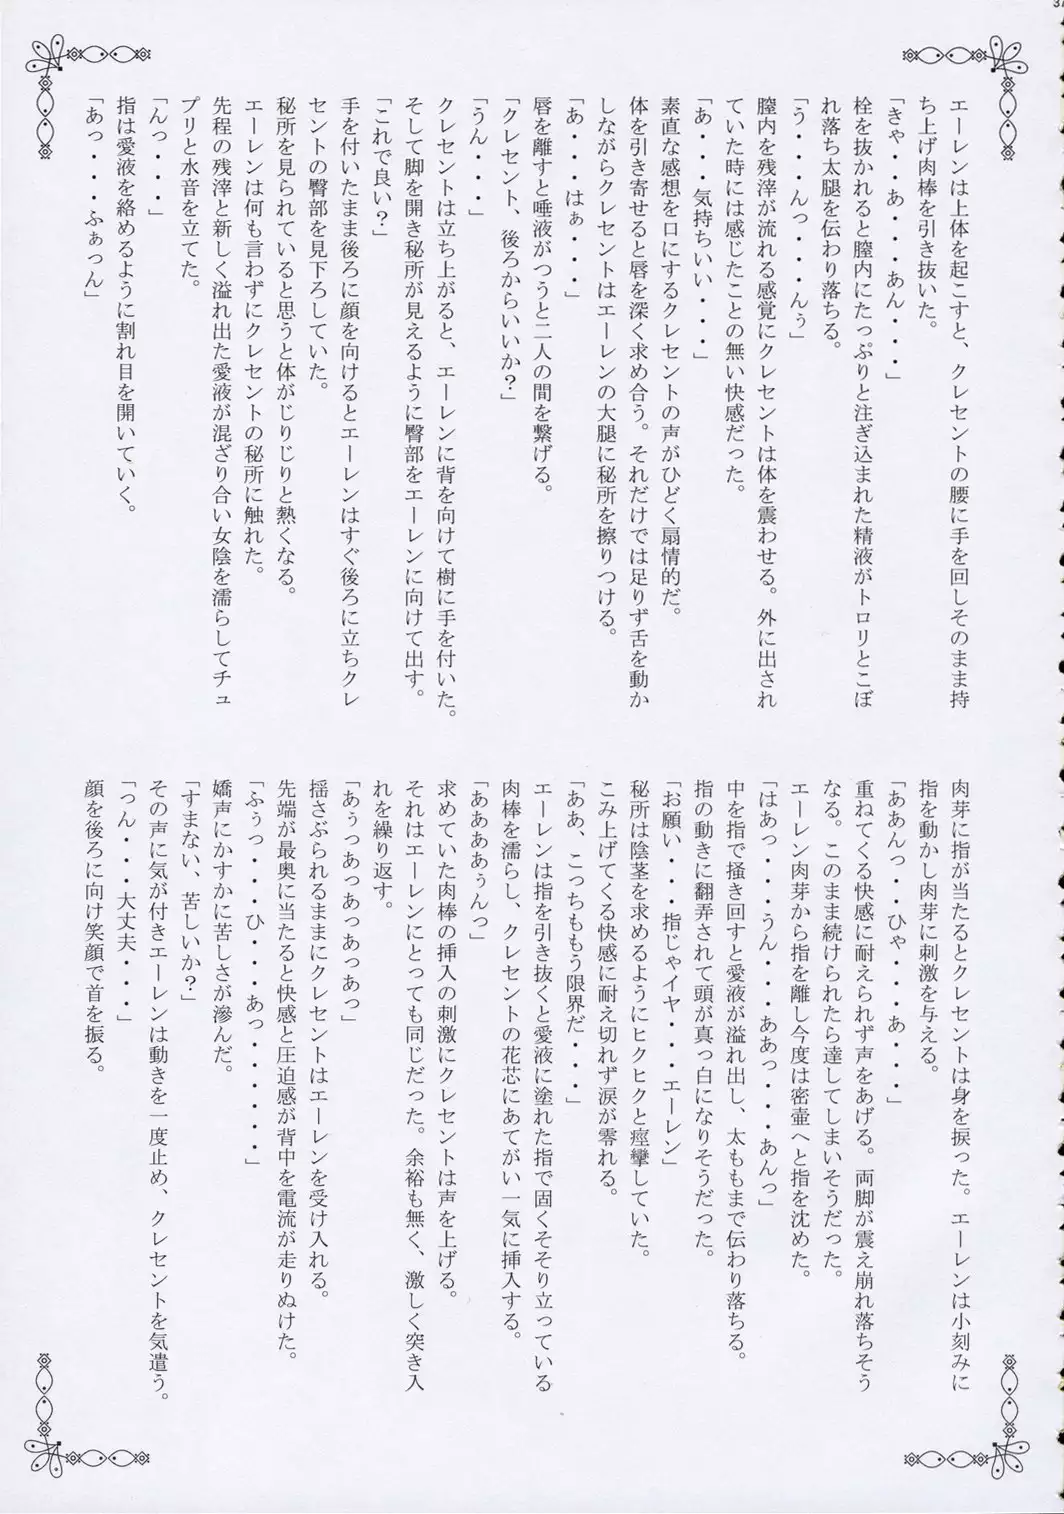 エーレンは上体を起こすと、クレセントの腰に手を回しそのまま持
ち上げ肉棒を引き抜いた。
「きゃ・・あ・・・あん・・・」
栓を抜かれると膣内にたっぷりと注ぎ込まれた精液がトロリとこぼ
れ落ち太腿を伝わり落ちる。
「う・・・んっ・・・んぅ」
膣内を残滓が流れる感覚にクレセントは体を震わせる。外に出され
ていた時には感じたことの無い快感だった。
「あ・・・気持ちいい・・・」
素直な感想を口にするクレセントの声がひどく扇情的だ。
体を引き寄せると唇を深く求め合う。それだけでは足りず舌を動か
しながらクレセントはエーレンの大腿に秘所を擦りつける。
「あ・・・はぁ・・・」
唇を離すと唾液がつうと二人の間を繋げる。
「クレセント、後ろからいいか？」
「うん・・・」
クレセントは立ち上がると、エーレンに背を向けて樹に手を付いた。
そして脚を開き秘所が見えるように臀部をエーレンに向けて出す。
「これで良い？」
手を付いたまま後ろに顔を向けるとエーレンはすぐ後ろに立ちクレ
セントの臀部を見下ろしていた。
秘所を見られていると思うと体がじりじりと熱くなる。
エーレンは何も言わずにクレセントの秘所に触れた。
先程の残滓と新しく溢れ出た愛液が混ざり合い女陰を濡らしてチュ
プリと水音を立てた。
「んっ・・・」
指は愛液を絡めるように割れ目を開いていく。
「あっ・・・ふぁっん」
肉芽に指が当たるとクレセントは身を捩った。エーレンは小刻みに
指を動かし肉芽に刺激を与える。
「ああんっ・・・ひゃ・・・あ・・・」
重ねてくる快感に耐えられず声をあげる。両脚が震え崩れ落ちそう
なる。このまま続けられたら達してしまいそうだった。
エーレン肉芽から指を離し今度は密壷へと指を沈めた。
「はあっ・・・うん・・・ああっ・・・あんっ」
中を指で掻き回すと愛液が溢れ出し、太ももまで伝わり落ちる。
指の動きに翻弄されて頭が真っ白になりそうだった。
「お願い・・・指じゃイヤ・・・エーレン」
秘所は陰茎を求めるようにヒクヒクと痙攣していた。
こみ上げてくる快感に耐え切れず涙が零れる。
「ああ、こっちももう限界だ・・・」
エーレンは指を引き抜くと愛液に塗れた指で固くそそり立っている
肉棒を濡らし、クレセントの花芯にあてがい一気に挿入する。
「ああああぅんっ」
求めていた肉棒の挿入の刺激にクレセントは声を上げる。
それはエーレンにとっても同じだった。余裕も無く、激しく突き入
れを繰り返す。
「あぅっあっあっあっあっ」
揺さぶられるままにクレセントはエーレンを受け入れる。
先端が最奥に当たると快感と圧迫感が背中を電流が走りぬけた。
「ふぅっ・・・ひ・・・あっ・・・・・・」
嬌声にかすかに苦しさが滲んだ。
「すまない、苦しいか？」
その声に気が付きエーレンは動きを一度止め、クレセントを気遣う。
「っん・・・大丈夫・・・」
顔を後ろに向け笑顔で首を振る。